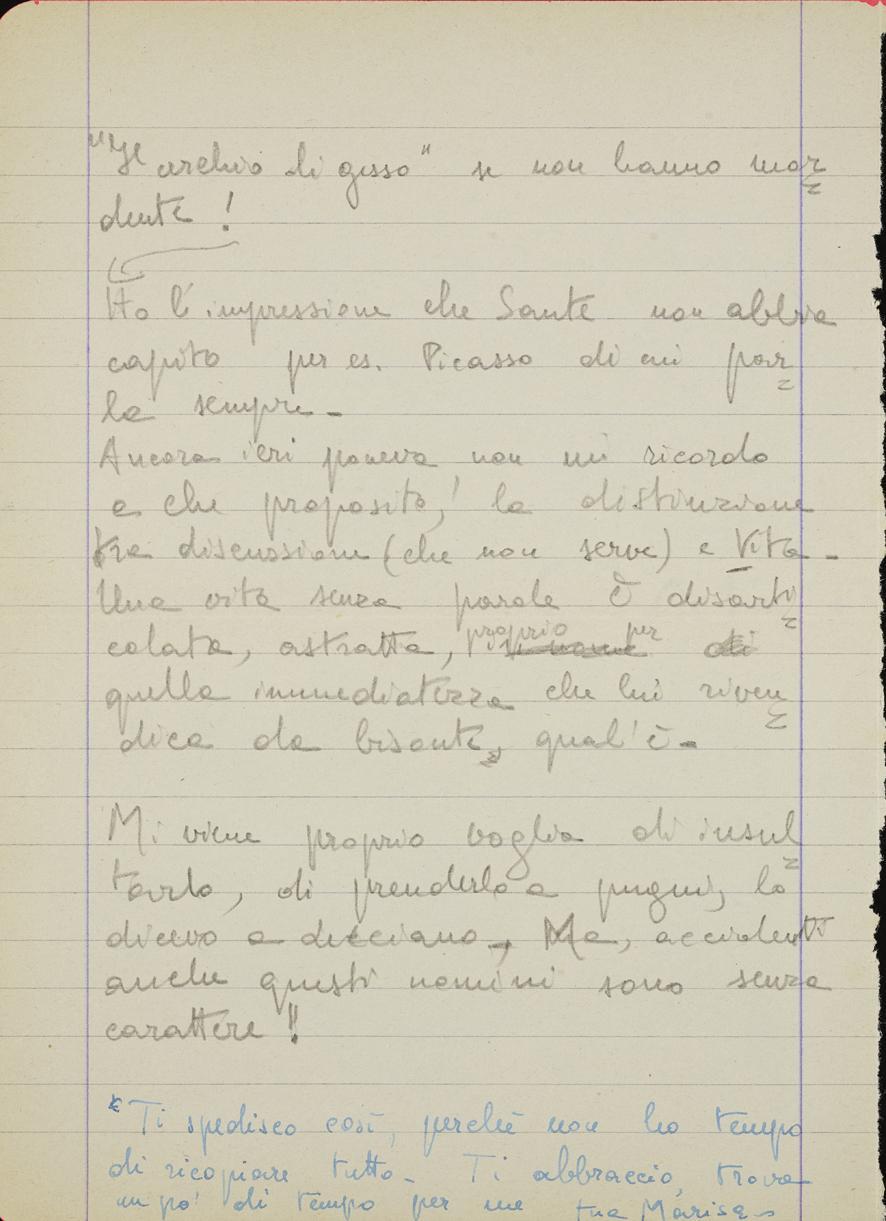 "Il cerchio di gesso" se non hanno mor
dente !
Ho l'impressione che Sante non abbia
capito per es. Picasso di cui par
la sempre -
Ancora ieri poneva non mi ricordo
a che proposito, la distinzione
tra discussione (che non serve) e Vita -
Una vita senza parole È disarti
colata, astratta, proprio per
quella immediatezza che lui riven
dica da bisonte, qual'è -
Mi viene proprio voglia di insul
tarlo, di prenderlo a pugni, lo
dicevo a Ma, accidenti
anche questi uomini sono senza
carattere !!
* Ti spedisco così, perchè non ho tempo
di ricopiare tutto - Ti abbraccio, trova
un po' di tempo per me tua Marisa -